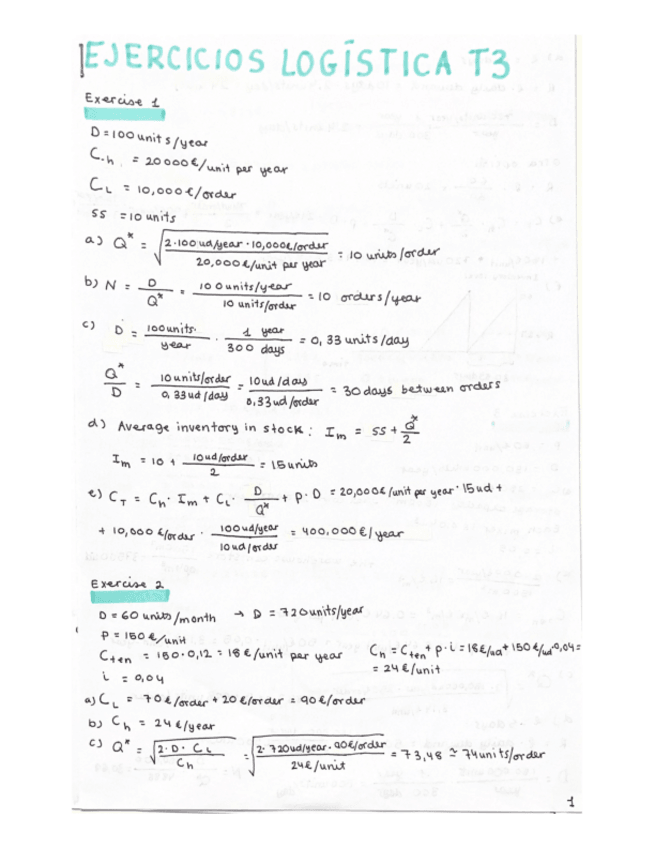 EJERCICIOS LOGÍSTICA T3
Exercise 1
D = 100 units/year
C.h. = 20000€/unit per year
CL = 10,000€/order
SS = 10 units
a) Q* = √(2·100 ud/year · 10,000€/order / 20,000€/unit per year) = 10 units/order
b) N = D/Q* = 100 units/year / 10 units/order = 10 orders/year
c) D = 100 units/year · 1 year/300 days = 0,33 units/day
Q*/D = 10 units/order / 0,33 ud/day = 10 ud/day / 0,33 ud/order = 30 days between orders
d) Average inventory in stock: Im = SS + Q*/2
Im = 10 + 10 ud/order / 2 = 15 units
e) CT = Ch · Im + CL · D/Q* + P · D = 20,000€/unit per year · 15 ud +
+ 10,000 €/order · 100 ud/year / 10 ud/order = 400,000€/year
Exercise 2
D = 60 units/month → D = 720 units/year
P = 150 €/unit
Cten = 150·0,12 = 18€/unit per year Ch = Cten + P·i = 18€/ud + 150€/ud·0,04 =
= 24€/unit
i = 0,04
a) CL = 70€/order + 20€/order = 90€/order
b) Ch = 24€/year
c) Q* = √(2·D·CL / Ch) = √(2·720 ud/year·90€/order / 24€/unit) = 73,48 ≃ 74 units/order
1